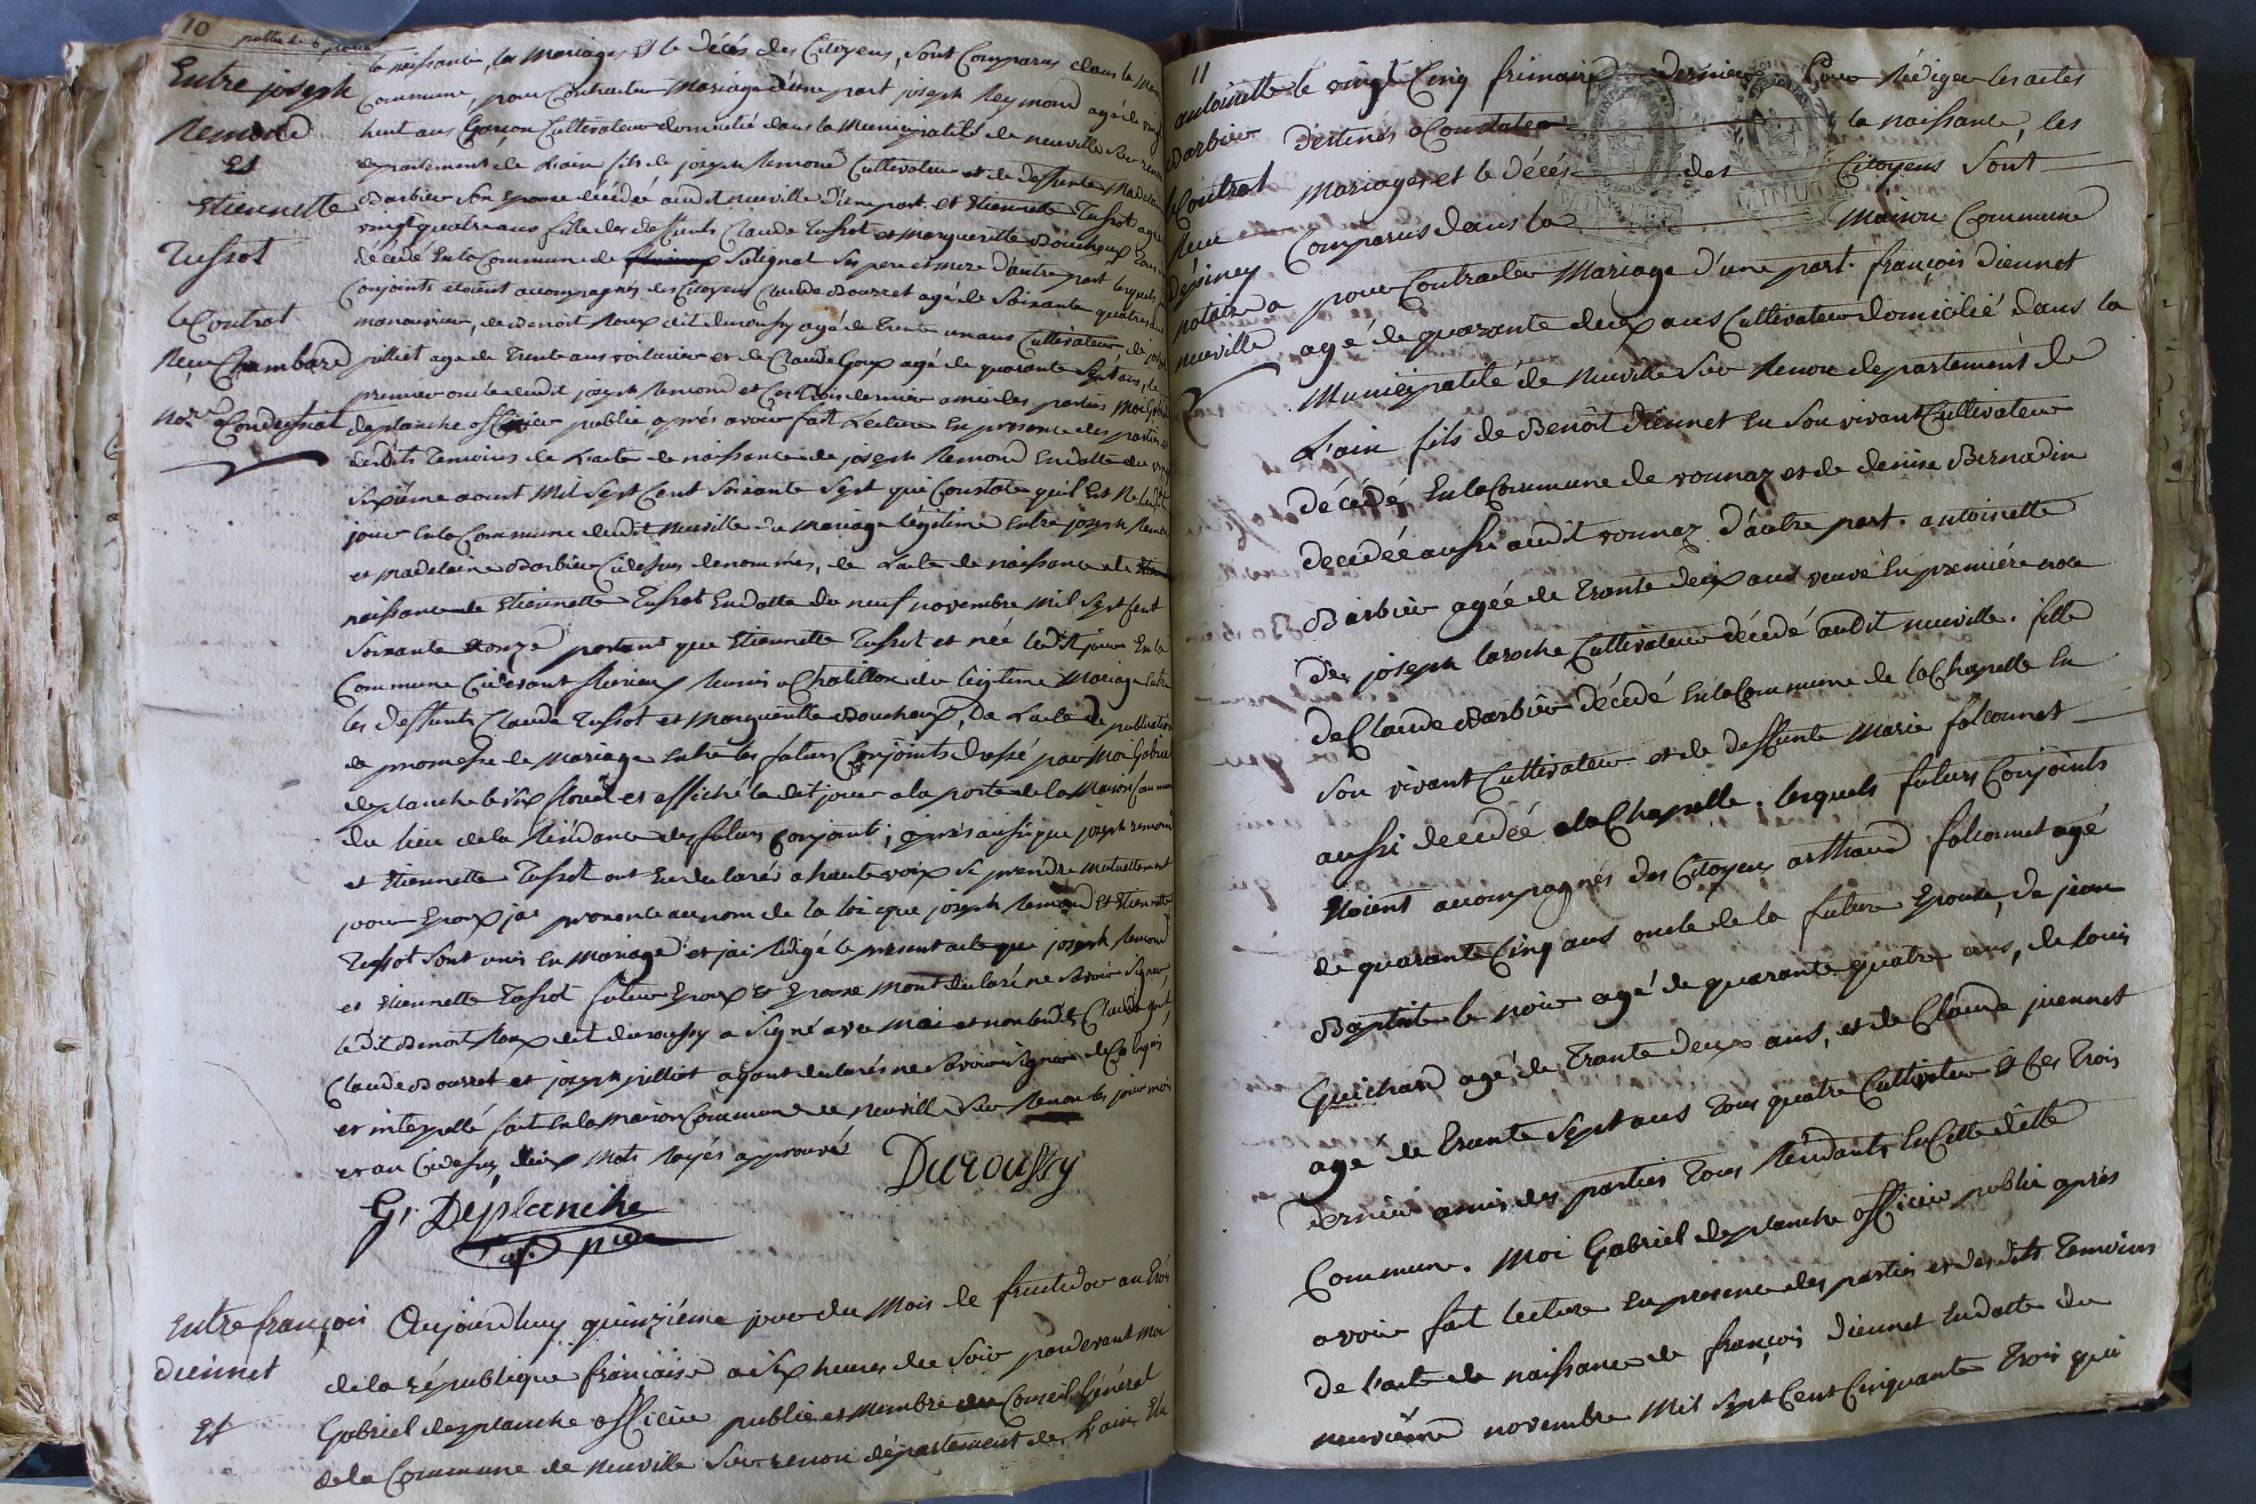 10
Entre joseph
Remond
Et
Etiennette
Tussot
le Contrat
Reçu Chambard
Nore a Condeyssiat
la naissance, les Mariages Et le décés des Citoyens, sont Comparus dans la
Commune, pour Contracter Mariage d'une part joseph Reymond agé de vingt
huit ans Garçon Cultivateur domicilié dans la Municipalité de neuville sur
departement de L'ain fils de joseph Remond Cultivateur et de deffunte
Barbier son Epouse décédée audit neuville d'une part. et Etiennette Tussot agée
vingt quatre ans fille des deffunts Claude Tussot et Margueritte Bouchoux
décédé En la Commune de Sulignat ses pere et mere d'autre part lesquels
Conjoints etoient accompagnés des Citoyens Claude Bourret agé de Soixante quatre ans
manouvrier, de Benoit Roux dit duroussy agé de Trente un ans Cultivateur de
pilliet age de Trente ans voiturier et de Claude Goux agé de quarante Sept ans, le
premier oncle dudit joseph Remond et Ces Trois dernier amis des parties Moi
deplanche officier public après avoir fait Lecture En presence des parties
desdits Temoins de L'acte de naissance de joseph Remond En datte du
Sixième aoust Mil Sept Cent Soixante Sept qui Constate qu'il Est Né
jour En la Commune dudit Neuville du Mariage légitime Entre joseph
et Madelaine Barbier Cidessus denommés, de L'acte de naissance de
naissance de Etiennette Tussot En datte du neuf novembre Mil Sept Cent
Soixante Et onze portant que Etiennette Tussot et née ledit jour En la
Commune Cidevant Reuni a Chatillon du légitime Mariage Entre
les deffunts Claude Tussot et Margueritte Bouchoux, De L'acte de publication
de promesse de Mariage Entre les futurs Conjoints dressé par Moi Gabriel
deplanche le et affiché le dit jour a la porte de la Maison
du lieu de la Résidence des futurs Conjoints; après aussi que joseph remond
et Etiennette Tussot ont Eu declaré a haute voix Se prendre Mutuellement
pour Epoux jai prononcé au nom de la loi que joseph Remond Et Etiennette
Tussot Sont unis En Mariage et jai Rédigé le present acte que joseph Remond
et Etiennette Tussot futur Epoux Et Epouse Mont declaré ne Savoir Signer,
le dit Benoit Roux dit duroussy a Signé avec Moi et non lesdits Claude
Claude Bourret et joseph pilliet ayant declarés ne Savoir Signer de Ce Requis
et interpellé fait En la maison Commune de Neuville Sur Renon les jour mois
et an Cidessus deux Mots Rayés approuvés
Duroussy
G. Deplanche
of. pu
Entre françois
diennet
Et
Aujourdhuy quinzième jour du Mois de fructidor an trois
de la république française a six heures du Soir pardevant Moi
Gabriel deplanche officier public et Membre du Conseil Général
de la Commune de Neuville Sur renon département de L'ain Elu
11
antoinette
Barbier
le Contrat
Reçu
dépiney
notaire a
neuville
le vingt Cinq frimaire dernier Pour Rédiger les actes
destinés a Constater la naissance, les
Mariages et le décés des Citoyens Sont
Comparus dans la Maison Commune
pour Contracter Mariage d'une part. françois diennet
agé de quarante deux ans Cultivateur domicilié dans la
Municipalité de Neuville Sur Renon departement de
L'ain fils de Benoit diennet En Son vivant Cultivateur
décédé En la Commune de vonnaz et de denise Bernadin
decedée aussi audit vonnaz d'autre part. antoinette
Barbier agée de Trante deux ans veuve En première noce
de joseph laroche Cultivateur décédé audit neuville. fille
de Claude Barbier décédé En la Commune de la Chapelle En
Son vivant Cultivateur et de deffunte Marie falconnet
aussi decedée a la Chapelle. lesquels futurs Conjoints
Etoient accompagnés des Citoyens arthaud falconnet agé
de quarante Cinq ans oncle de la future Epouse, de jean
Baptiste le noir agé de quarante quatre ans, de louis
Guichard agé de Trante deux ans, et de Claude juennet
age de Trante Sept ans Tous quatre Cultivateur Et Ces Trois
dernier amis des parties Tous Résidants En Cette ditte
Commune. Moi Gabriel deplanche officier public après
avoir fait lecture En presence des parties et desdits Temoins
De l'acte de naissance de françois diennet En datte du
neuvième novembre Mil Sept Cent Cinquante Trois qui